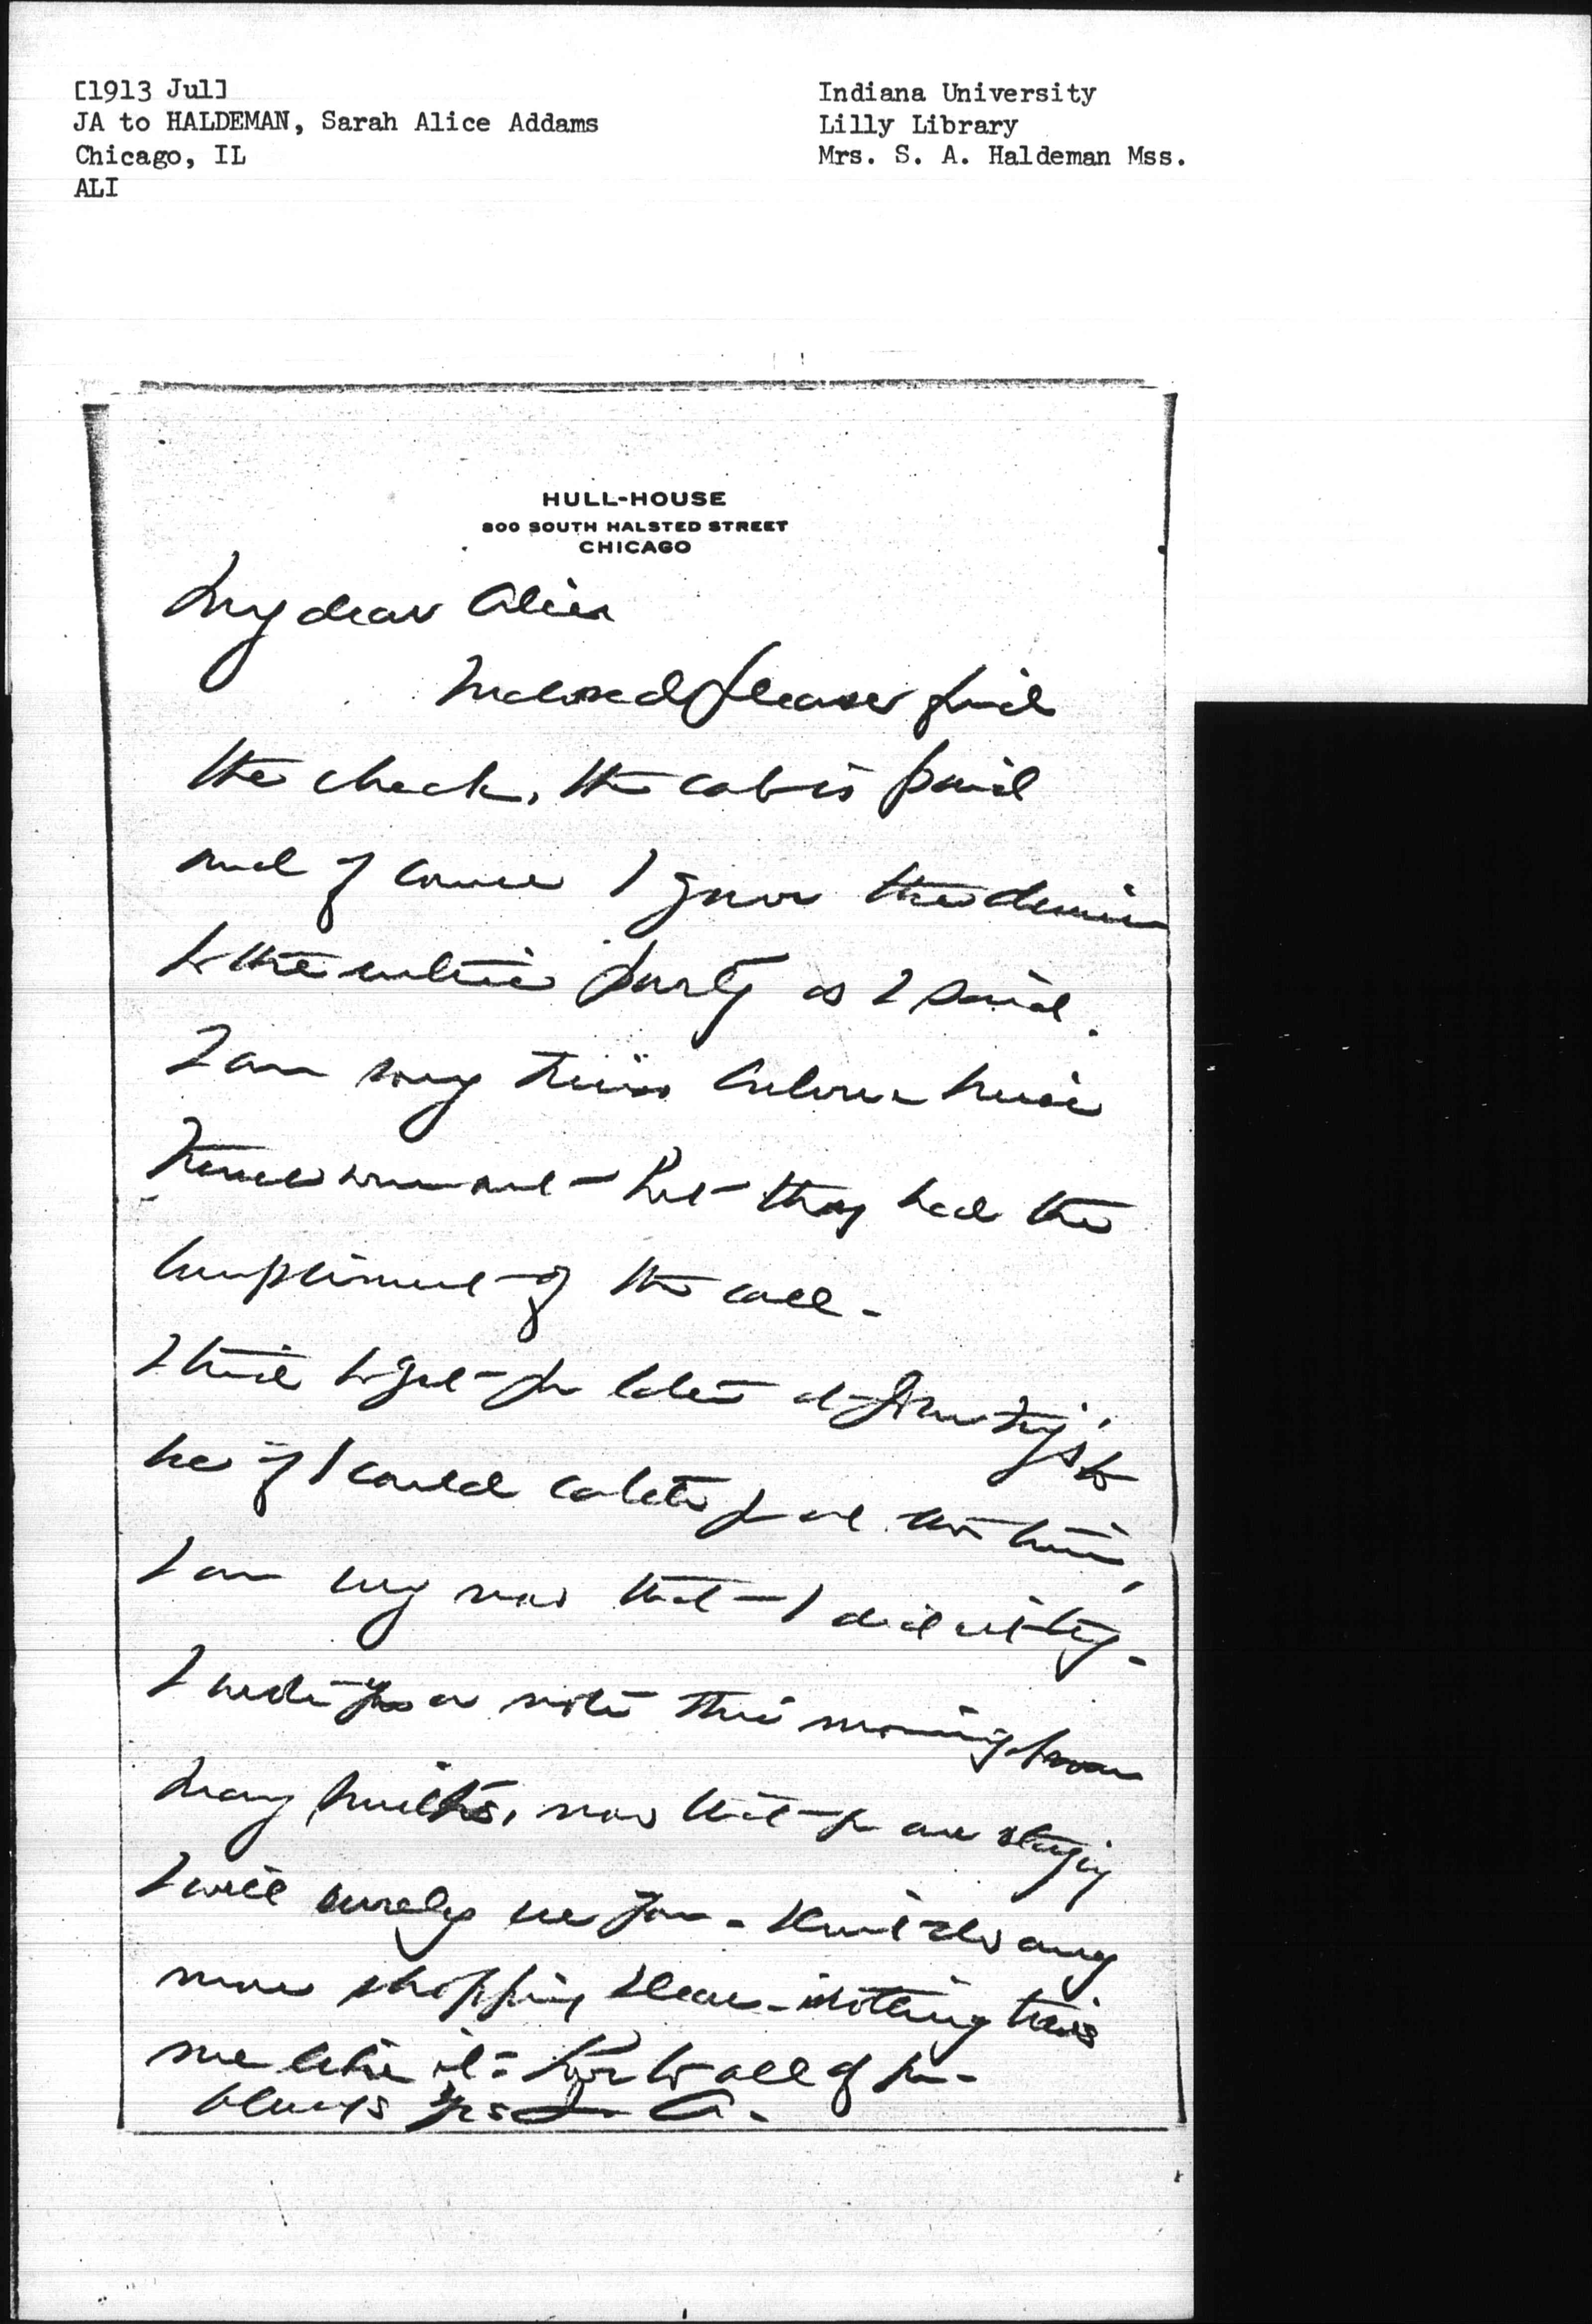 [1913 Jul]
JA to HALDEMAN, Sarah Alice Addams
Chicago, IL
ALI
Indiana University
Lilly Library
Mrs. S. A. Haldeman Mss.
HULL-HOUSE
800 SOUTH HALSTED STREET
CHICAGO
My dear Alice
Inclosed please find
the check, the cab is paid
and of course I gave the dinner
to the entire party as I said.
I am sorry Miss
but they had the
compliment of the call.
I tried to get you later
see if I could
I am sorry now that I didn't
I wrote you a note this morning from
Mary Smith's, now that you are staying
I will surely see you - Don't do any
more shopping dear - nothing tires
me like it - Love to all of you -
Always yrs J A.